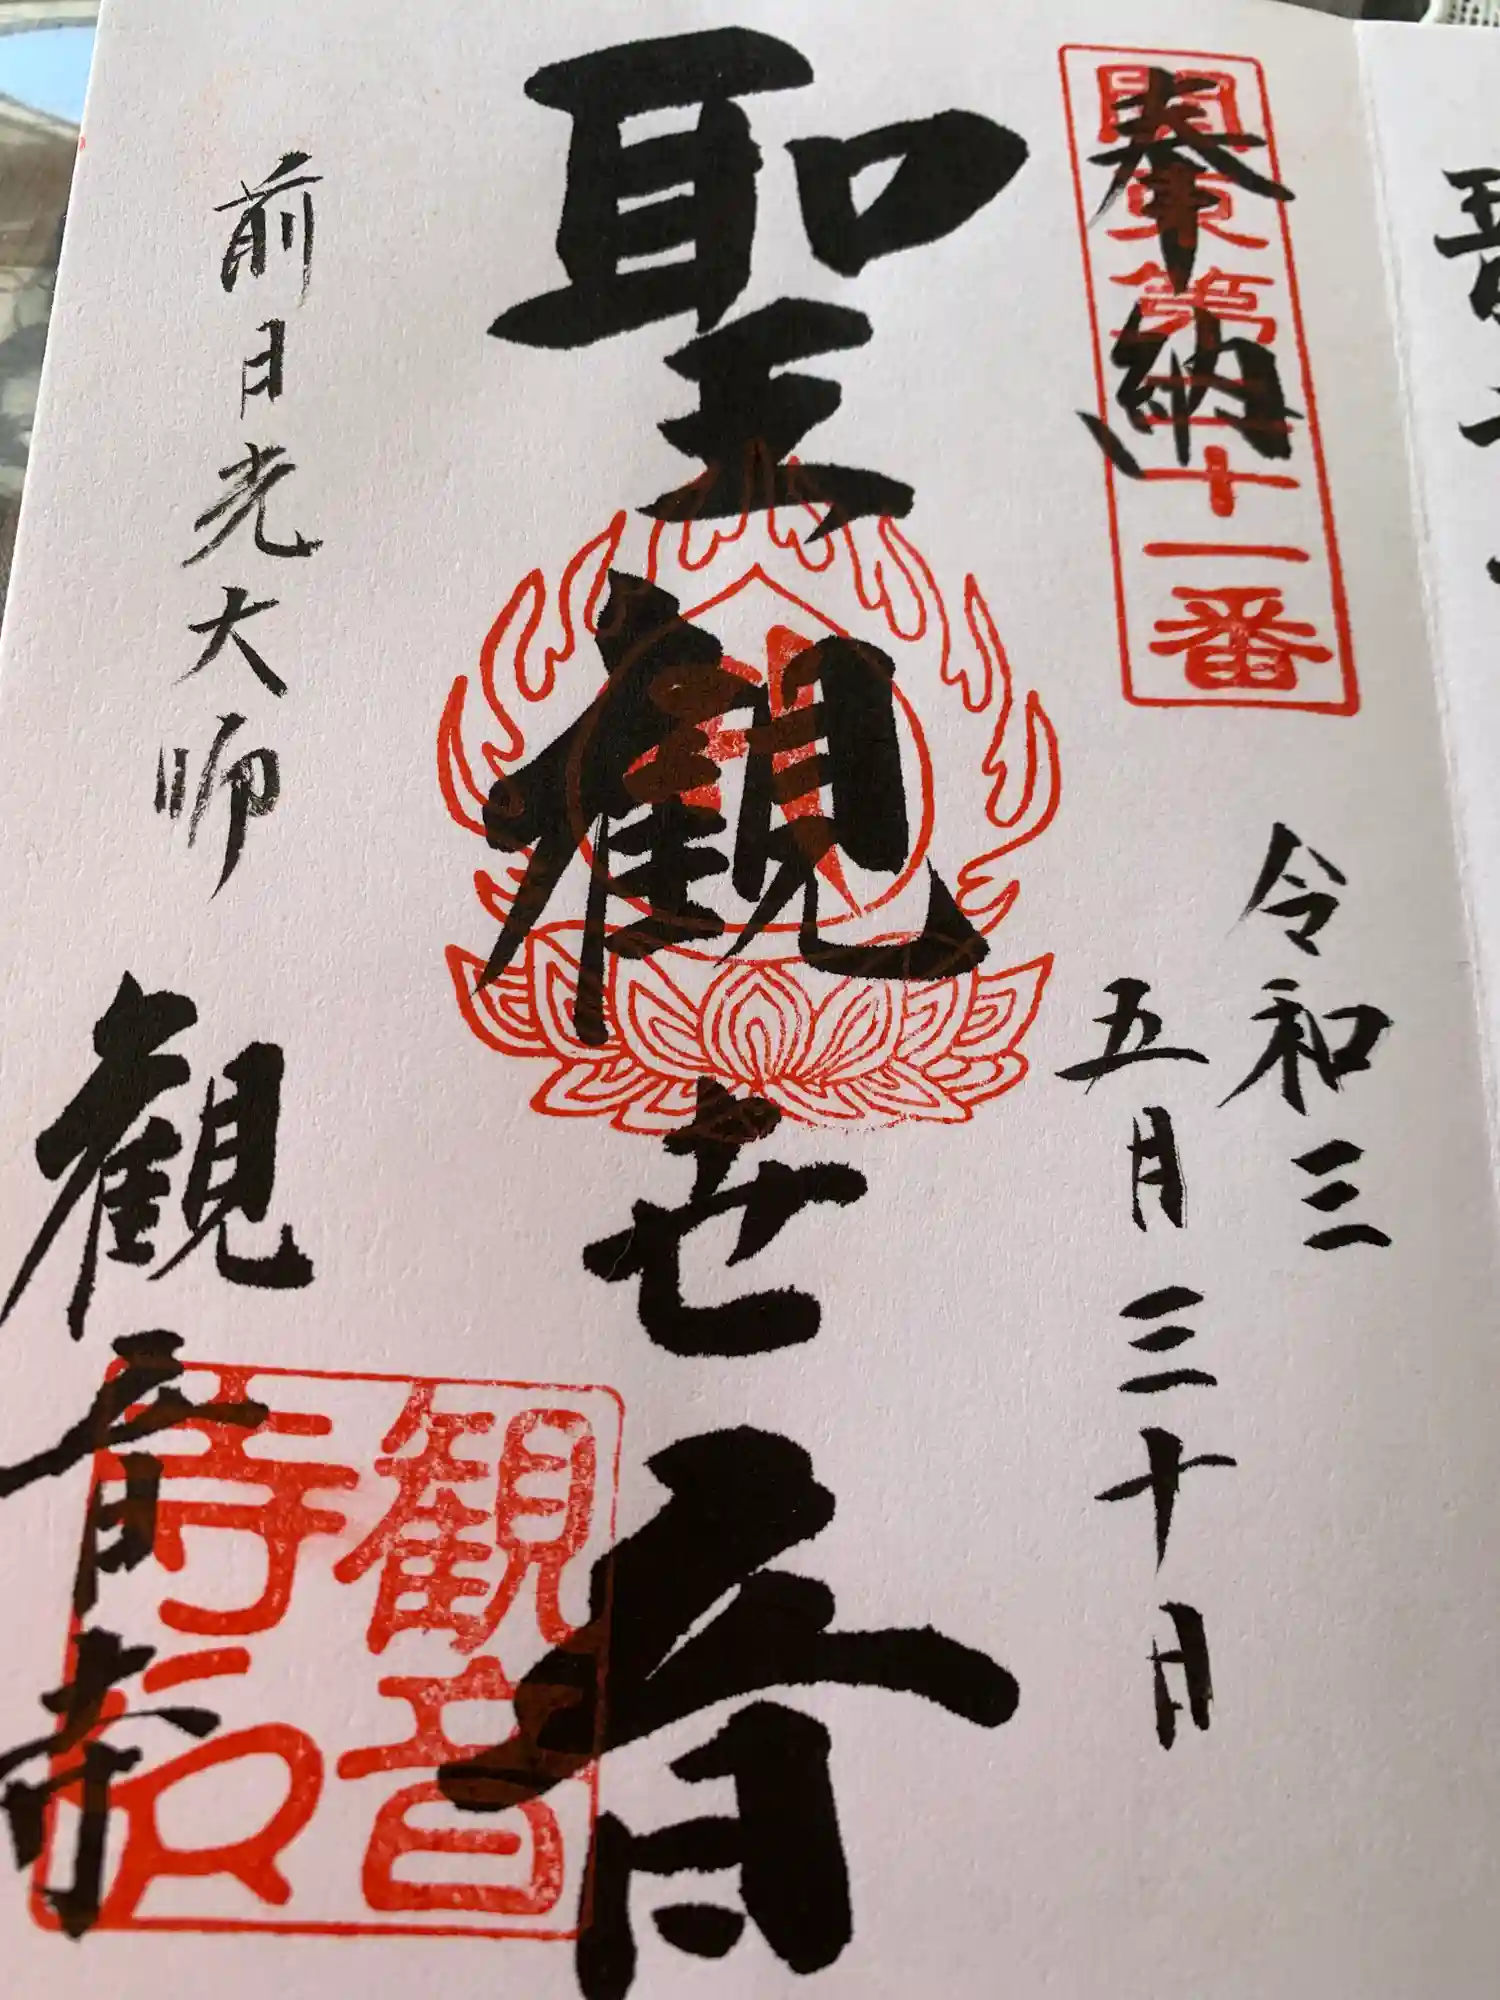 奉納
関東第二十一番
令和三
五月三十日
聖観世音
前日光大師
観音寺
観音
寺印